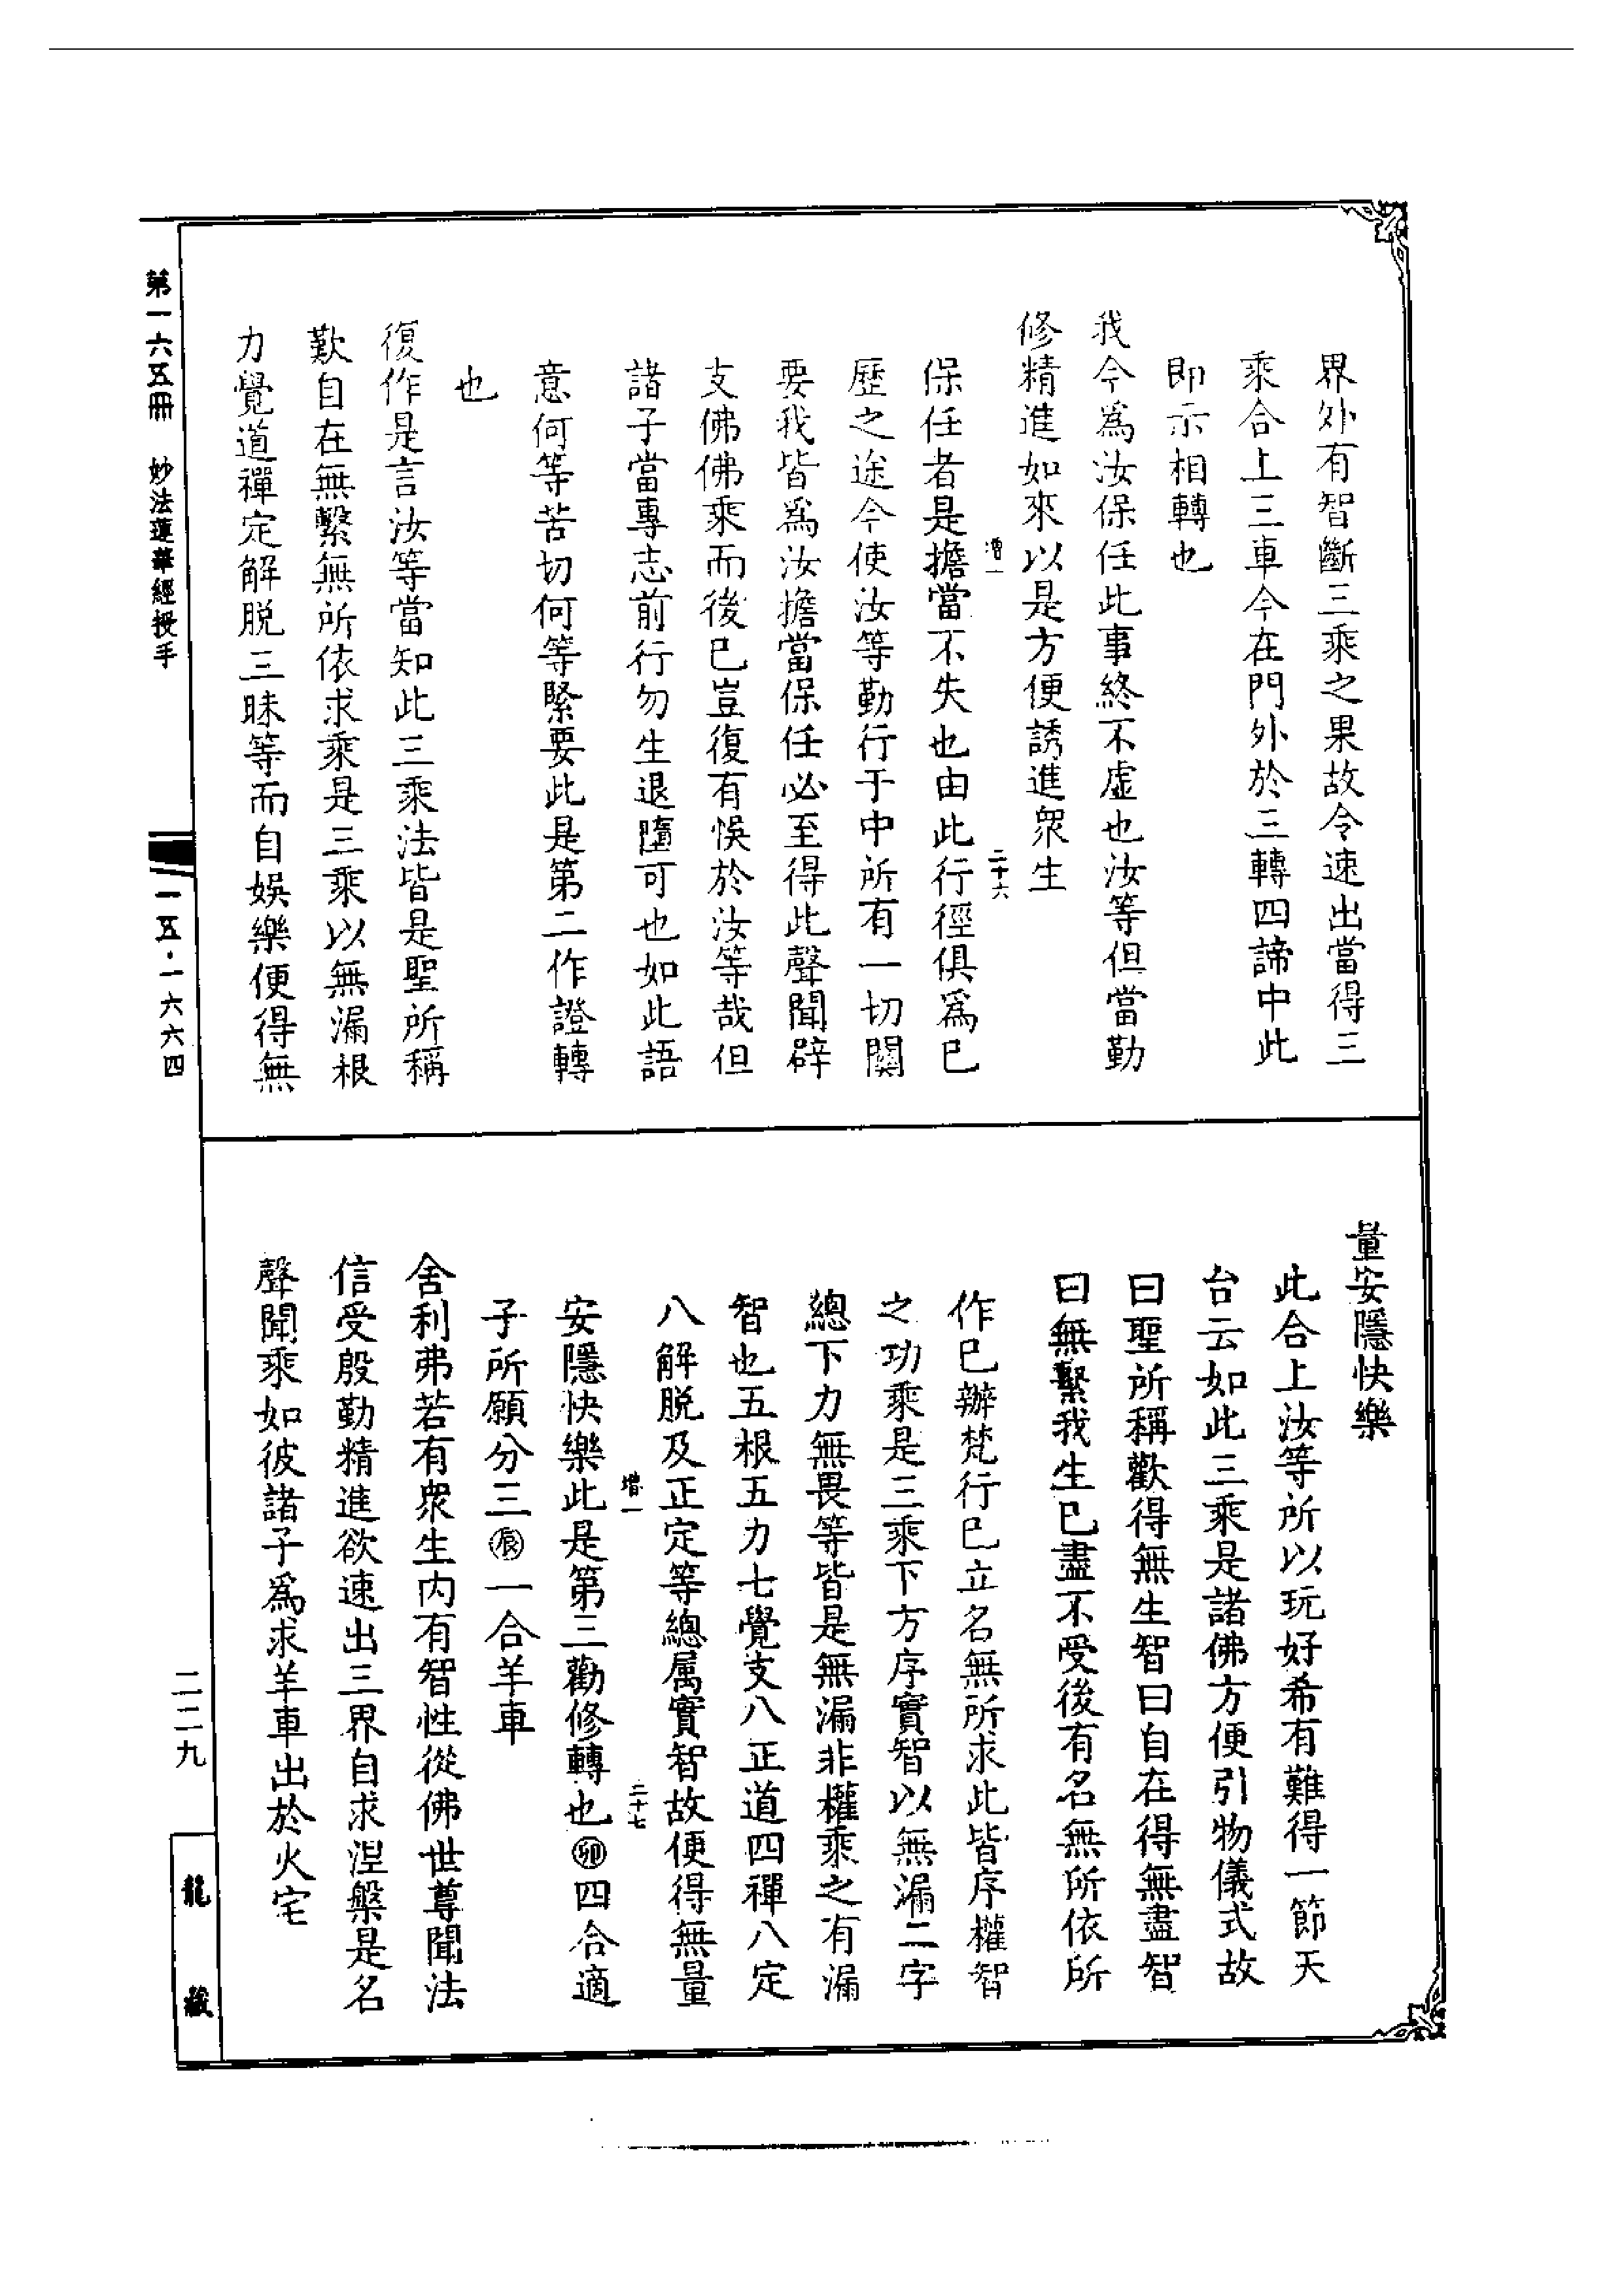 界外有智斷三乘之果故令速出當得三
乘合上三車今在門外於三轉四諦中此
即示相轉也
我今為汝保任此事終不虛也汝等但當勤
修精進如來以是方便誘進眾生
增一
二十六
保任者是擔當不失也由此行徑俱為已
歷之途今使汝等勤行于中所有一切關
要我皆為汝擔當保任必至得此聲聞辟
支佛佛乘而後已豈復有悞於汝等哉但
諸子當專志前行勿生退墮可也如此語
意何等苦切何等緊要此是第二作證轉
也
復作是言汝等當知此三乘法皆是聖所稱
歎自在無繫無所依求乘是三乘以無漏根
力覺道禪定解脫三昧等而自娛樂便得無
第一六五冊 妙法蓮華經授手
一五·一六六四
量安隱快樂
此合上汝等所以玩好希有難得一節天
台云如此三乘是諸佛方便引物儀式故
曰聖所稱歡得無生智曰自在得無盡智
曰無繫我生已盡不受後有名無所依所
作已辦梵行已立名無所求此皆序權智
之功乘是三乘下方序實智以無漏二字
總下力無畏等皆是無漏非權乘之有漏
智也五根五力七覺支八正道四禪八定
八解脫及正定等總属實智故便得無量
增一
二十七
安隱快樂此是第三勸修轉也㊞四合適
子所願分三㊞一合羊車
舍利弗若有眾生內有智性從佛世尊聞法
信受殷勤精進欲速出三界自求涅槃是名
聲聞乘如彼諸子為求羊車出於火宅
二二九
龍藏